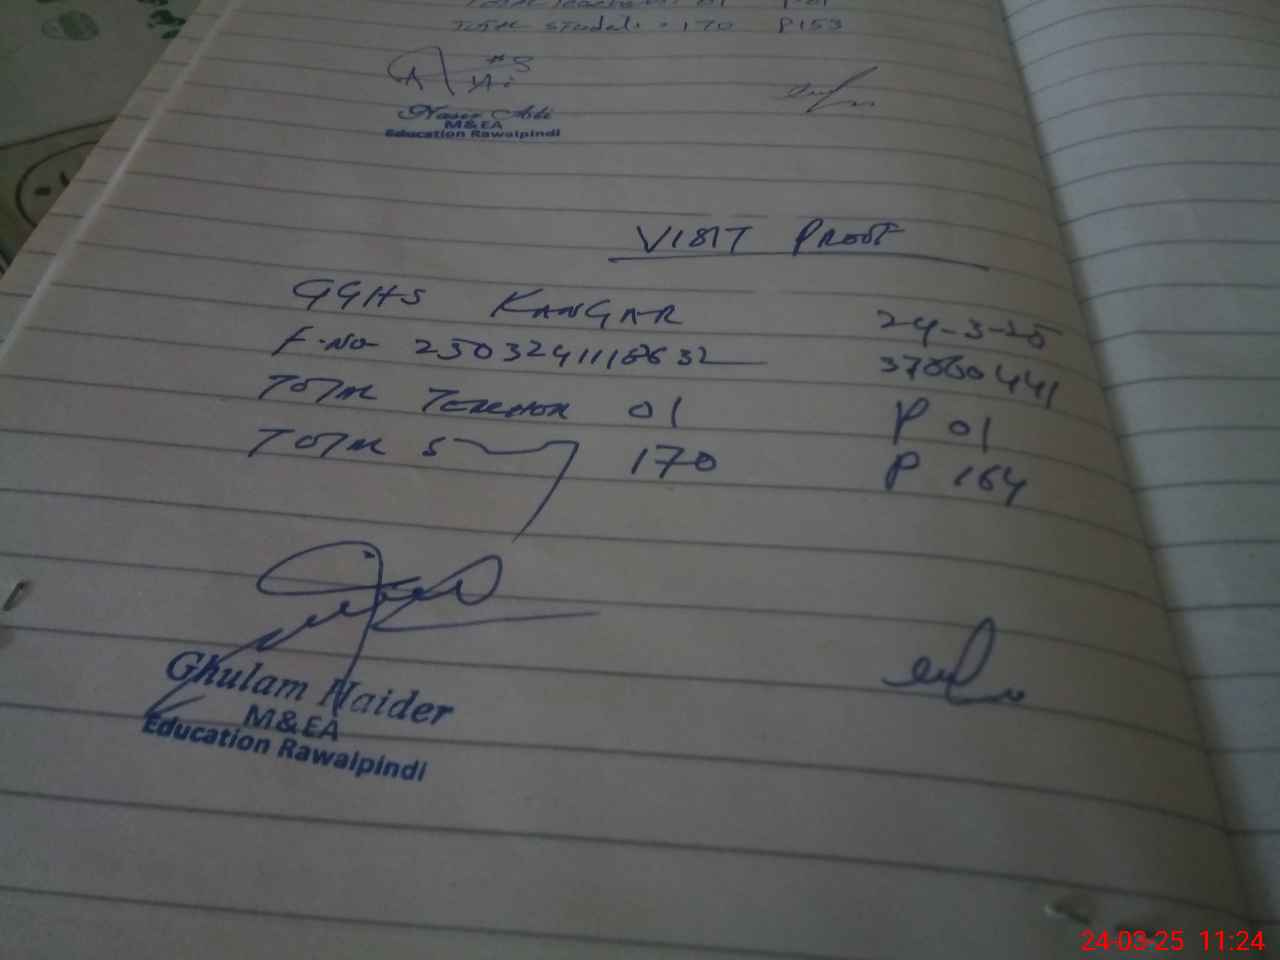 TOTAL Teachers: 01 P 01
TOTAL Student: 170 P153
Nasir Ali
M&EA
Education Rawalpindi
VISIT PROOF
GGHS KANGAR 24-3-25
F-NO 2503241118632 37060441
TOTAL TEACHER 01 P 01
TOTAL S 170 P 164
Ghulam Haider
M&EA
Education Rawalpindi
24-03-25 11:24